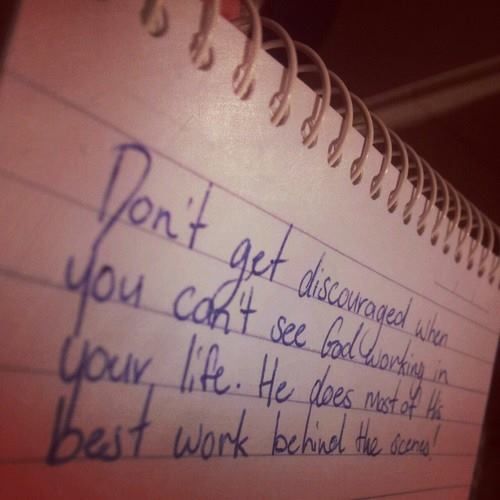 Don't get discouraged when
you can't see God working in
your life. He does most of His
best work behind the scenes!